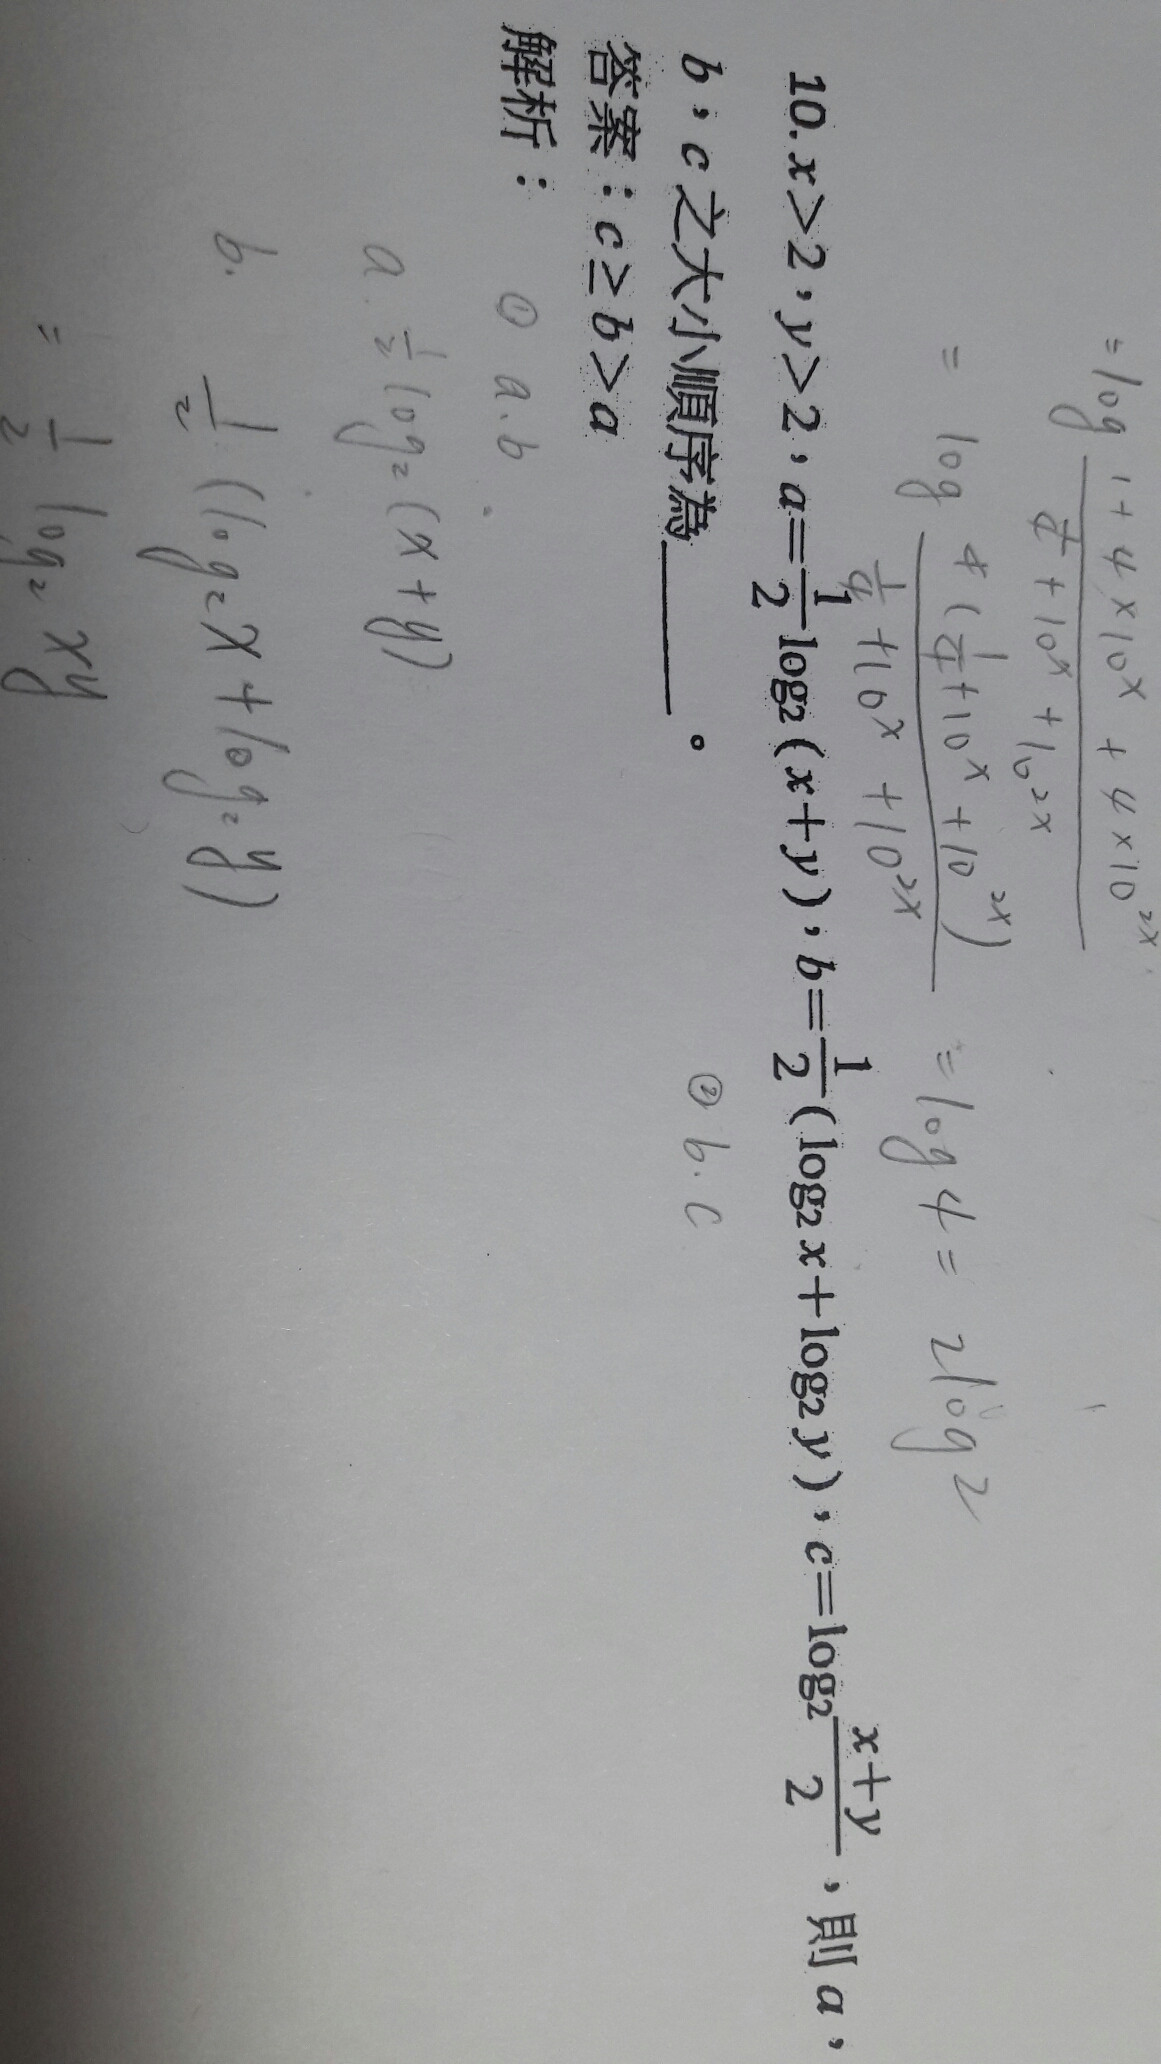 =log 1+4×10^x+4×10^2x / ¼+10^x+10^2x
= log 4(¼+10^x+10^2x) / ¼+10^x+10^2x = log4 = 2log2
10. x>2，y>2，a=½log₂(x+y)，b=½(log₂x+log₂y)，c=log₂ x+y/2，則a，
b，c之大小順序為______。
② b.c
答案：c≥b>a
解析：
① a.b
a. ½log₂(x+y)
b. ½(log₂x+log₂y)
= ½ log₂ xy